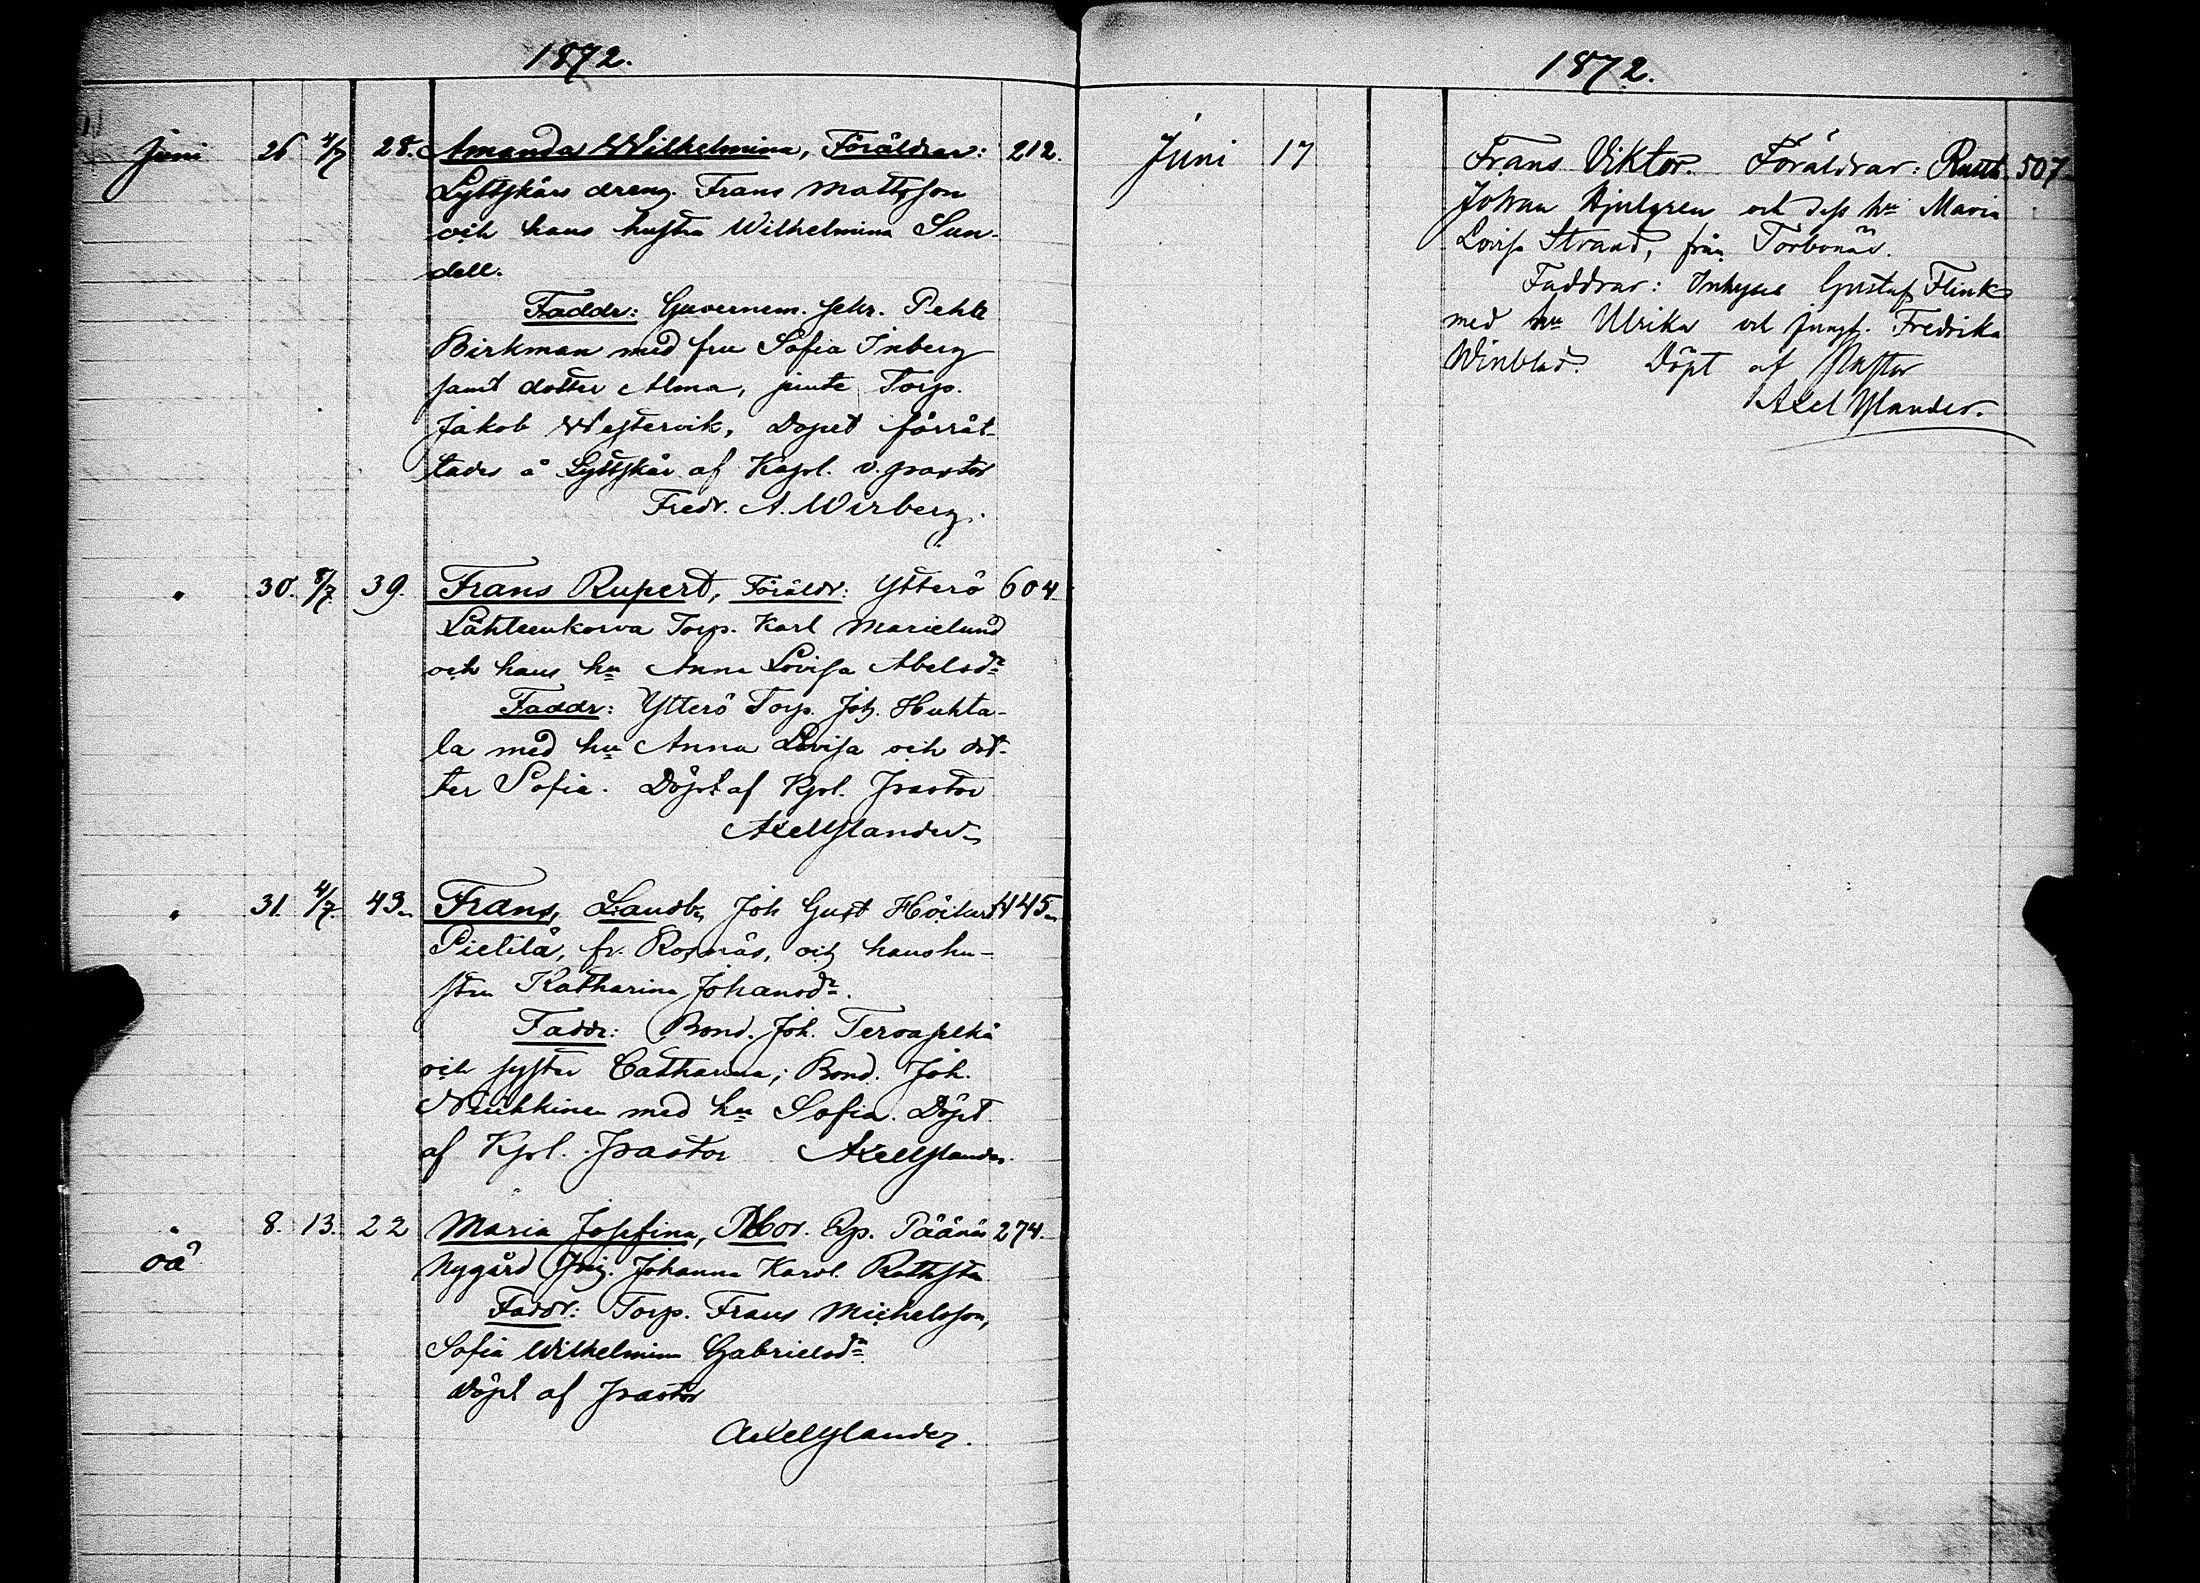 1872.
Juni 26 4/7 28. Amanda Wilhelmina, Föräldrar: 212.
Lyttskärs dreng. Frans Mattsson
och hans hustru Wilhelmina Sun-
dell.
Faddr: Guvernem. sekr. Pehr
Birkman med fru Sofia Inberg
samt dotter Alma, jemte Torp.
Jakob Westervik, Dopet förrät-
tades å Lyttskär af Kapl. v. pastor
Fredr. A. Wirberg.
" 30. 8/7 39. Frans Rupert, Föräldr: Ytterö 604
Lähteenkorva Torp. Karl Marielund
och hans hu Anna Lovisa Abelsdr
Faddr: Ytterö Torp. Joh. Huhta-
la med hu Anna Lovisa och dot-
ter Sofia. Döpt af Kpl. Pastor
Axel Ylander
" 31. 4/7 43. Frans, Landb. Joh Gust 445
Pietilä, fr. Rosnäs, och hans hu-
stru Katharina Johansdr.
Faddr: Bond. Joh. Tervapelkä
och syster Catharina; Bond. Joh.
med hu Sofia. Döpt
af Kpl. Pastor Axel Ylander.
" 8. 13. 22 Maria Josefina, Mor. Päänäs 274.
oä
Nygård Pig. Johanna Karol.
Faddr: Torp. Frans Michelsson,
Sofia Wilhelmina Gabrielsdr
Döpt af Pastor
Axel Ylander.
1872.
Juni 17 Frans Viktor. Föräldrar: 507
Johan Hjulgren och dess hu Maria
Lovisa Strand, från Torbonäs.
Faddrar: Inhyses Gustaf Flink
med hu Ulrika och jungf. Fredrika
Winblad. Döpt af Pastor
Axel Ylander.